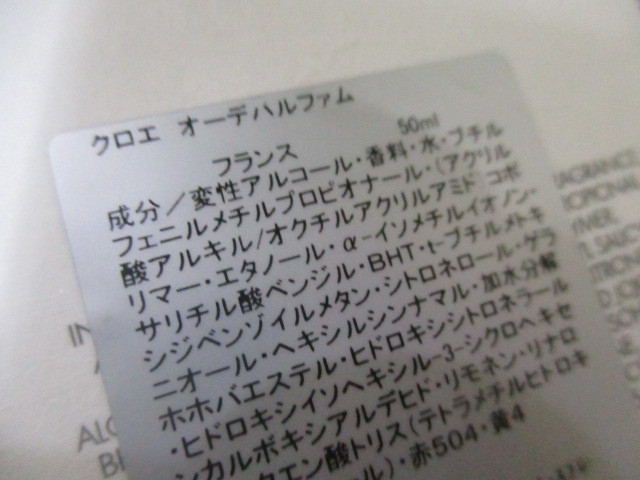 クロエ オーデパルファム
フランス 50ml
成分／変性アルコール・香料・水・ブチル
フェニルメチルプロピオナール・(アクリル
酸アルキル/オクチルアクリルアミド コポ
リマー・エタノール・α-イソメチルイオノン・
サリチル酸ベンジル・BHT・t-ブチルメトキ
シジベンゾイルメタン・シトロネロール・ゲラ
ニオール・ヘキシルシンナマル・加水分解
ホホバエステル・ヒドロキシシトロネラール
・ヒドロキシイソヘキシル-3-シクロヘキセ
ンカルボキシアルデヒド・リモネン・リナロ
クエン酸トリス(テトラメチルヒドロキ
ル)・赤504・黄4